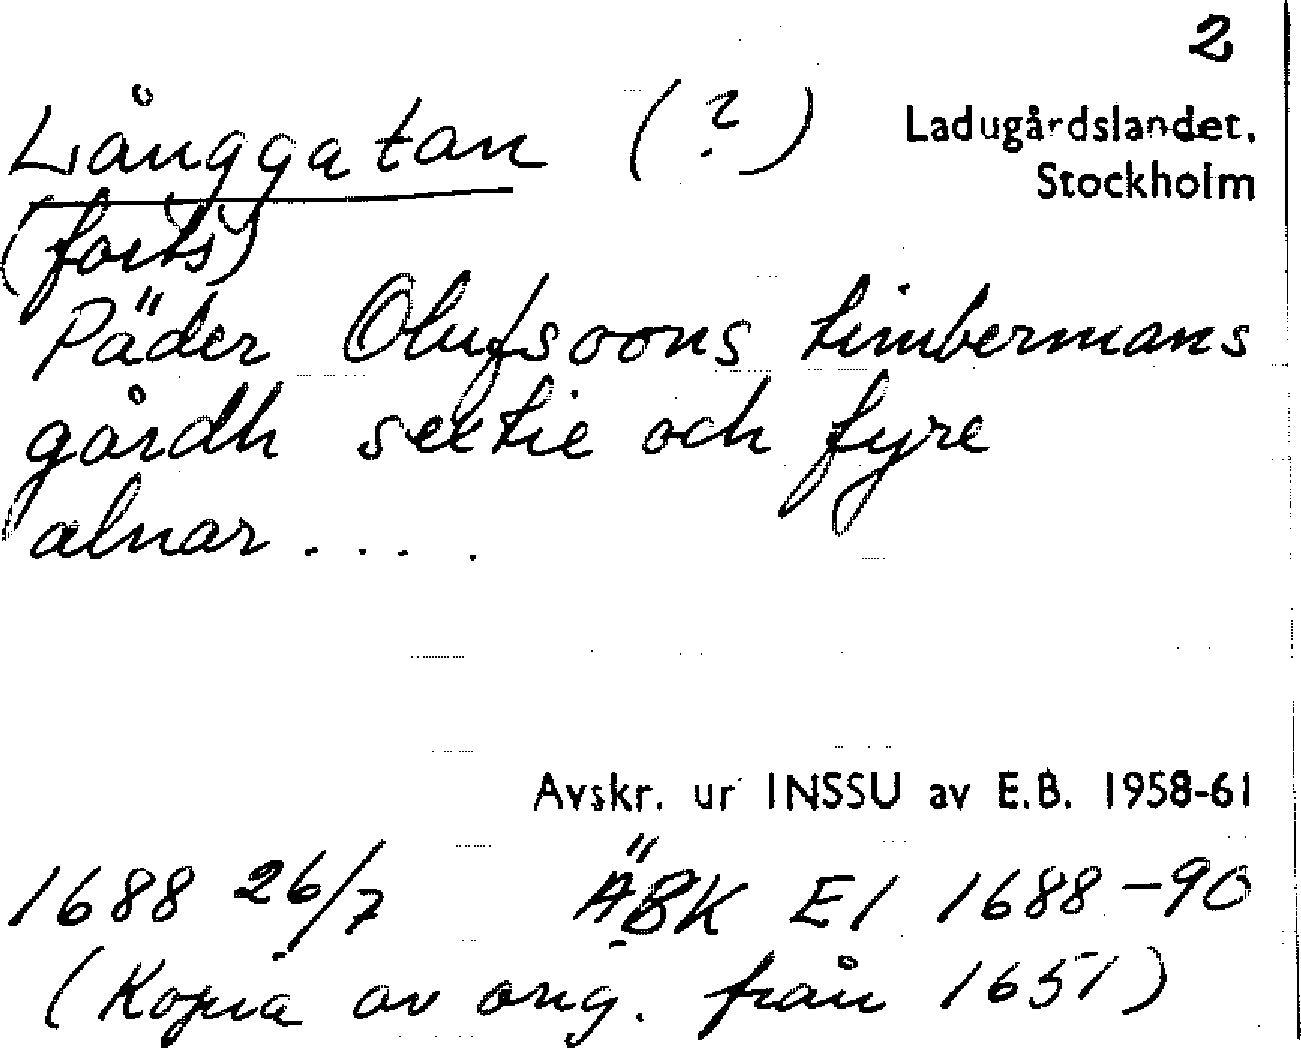 2
Långgatan (?) Ladugårdslandet.
Stockholm
(forts)
Päder Olufsoons timbermans
gårdh sextie och fyre
alnar . . . .
Avskr. ur INSSU av E.B. 1958-61
1688 26/7 ÄBK E1 1688-90
(Kopia av orig. från 1651)